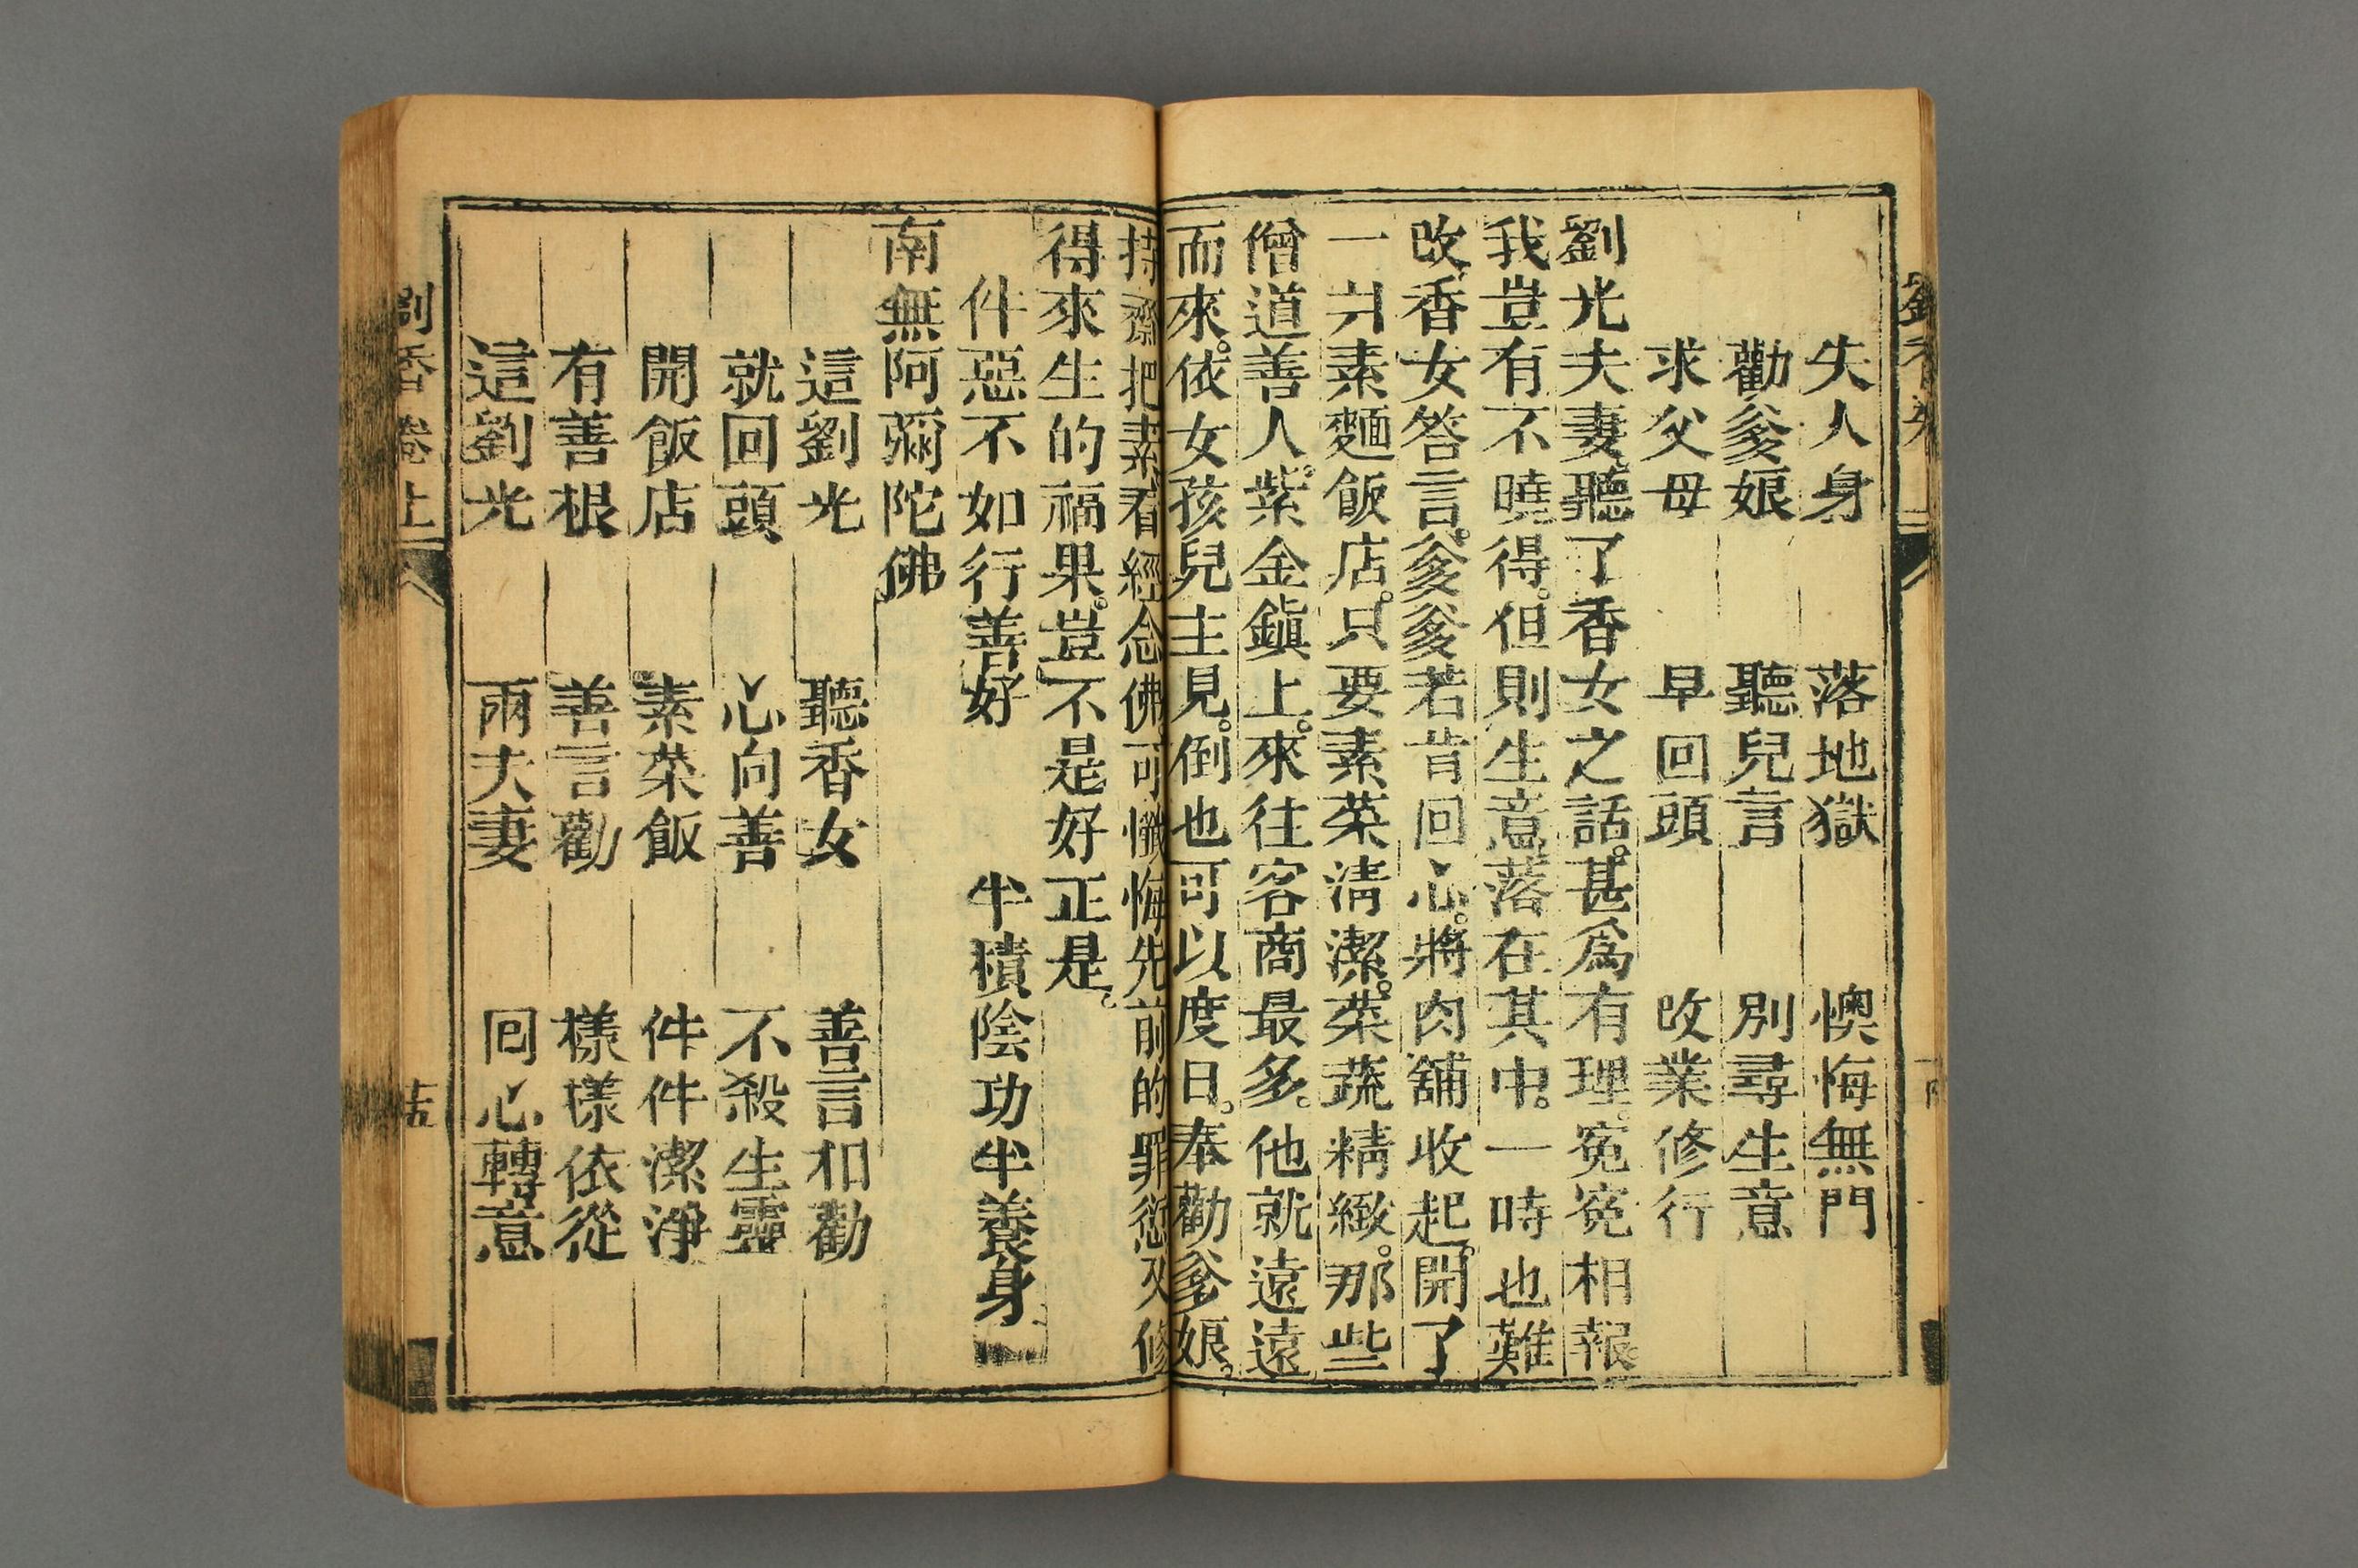 失人身　落地獄　懊悔無門
勸爹娘　聽兒言　別尋生意
求父母　早回頭　改業修行
劉光夫妻聽了香女之話。甚爲有理。寃寃相報。
我豈有不曉得。但則生意落在其中。一時也難
改。香女答言。爹爹若肯回心。將肉舖收起。開了
一爿素麵飯店。只要素菜淸潔。菜蔬精緻。那些
僧道善人。紫金鎭上。來往客商最多。他就遠遠
而來。依女孩兒主見。倒也可以度日。奉勸爹娘。
持齋把素看經念佛可懺悔先前的罪愆又修
得來生的福果。豈不是好正是。
件惡不如行善好　半積陰功半養身
南無阿彌陀佛
這劉光　聽香女　善言相勸
就回頭　心向善　不殺生靈
開飯店　素菜飯　件件潔淨
有善根　善言勸　樣樣依從
這劉光　兩夫妻　回心轉意
劉香卷上
十五